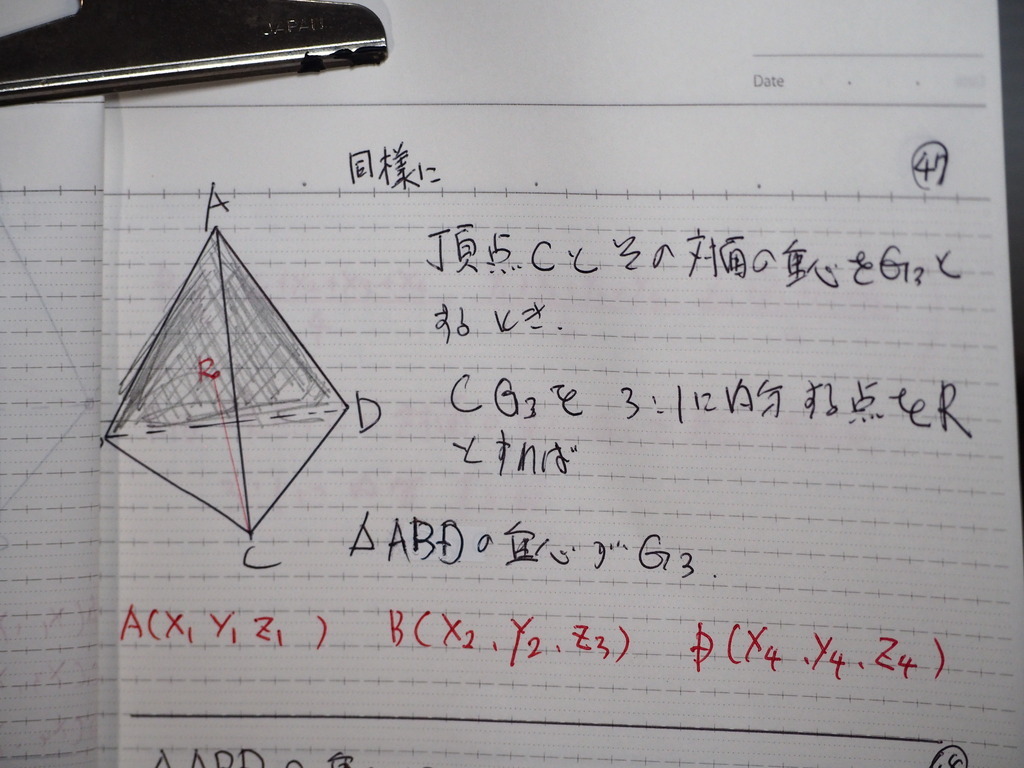 JAPAN
Date
同様に
㊼
A
頂点Cとその対面の重心をG₃と
するとき.
R
CG₃を 3:1に内分する点をR
D
とすれば
C
△ABDの重心が G₃.
A(X₁ Y₁ Z₁) B(X₂, Y₂, Z₃) D(X₄, Y₄, Z₄)
△ABDの重心